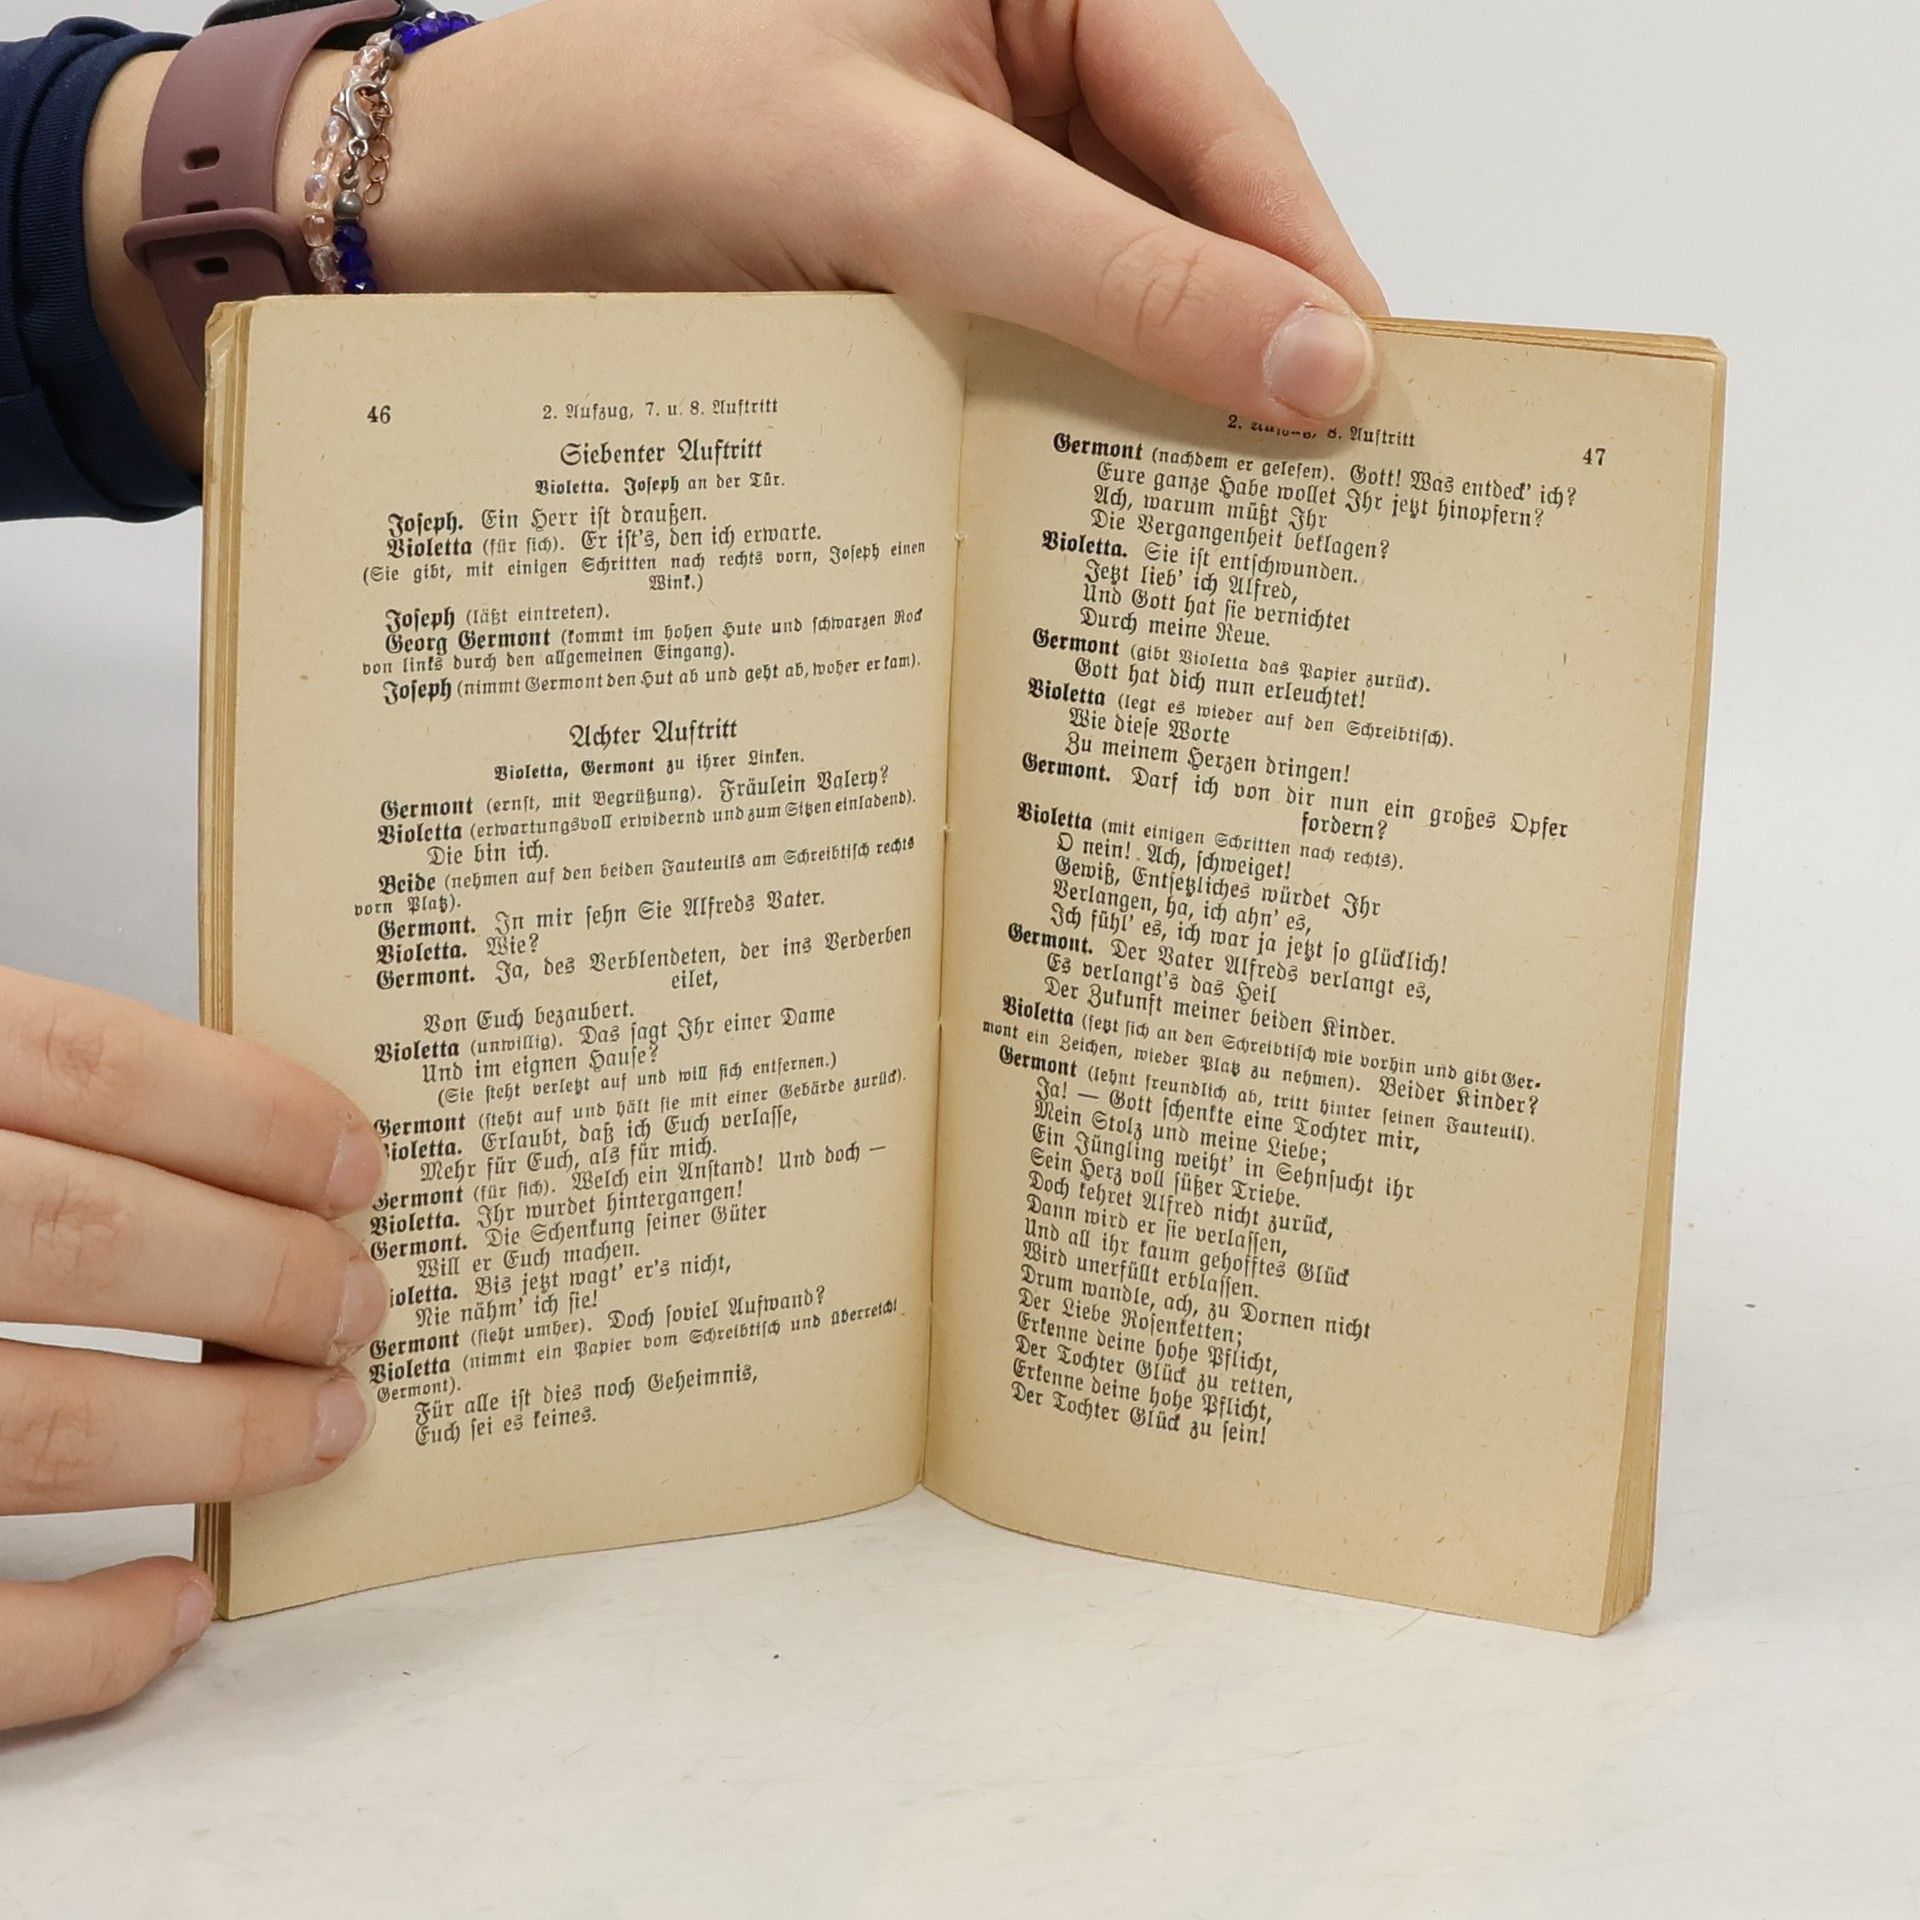 46
2. Aufzug, 7. u. 8. Auftritt
Siebenter Auftritt
Violetta. Joseph an der Tür.
Joseph. Ein Herr ist draußen.
Violetta (für sich). Er ist's, den ich erwarte.
(Sie gibt, mit einigen Schritten nach rechts vorn, Joseph einen
Wink.)
Joseph (läßt eintreten).
Georg Germont (kommt im hohen Hute und schwarzen Rock
von links durch den allgemeinen Eingang).
Joseph (nimmt Germont den Hut ab und geht ab, woher er kam).
Achter Auftritt
Violetta, Germont zu ihrer Linken.
Germont (ernst, mit Begrüßung). Fräulein Valery?
Violetta (erwartungsvoll erwidernd und zum Sitzen einladend).
Die bin ich.
Beide (nehmen auf den beiden Fauteuils am Schreibtisch rechts
vorn Platz).
Germont. In mir sehn Sie Alfreds Vater.
Violetta. Wie?
Germont. Ja, des Verblendeten, der ins Verderben
eilet,
Von Euch bezaubert.
Violetta (unwillig). Das sagt Ihr einer Dame
Und im eignen Hause?
(Sie steht verletzt auf und will sich entfernen.)
Germont (steht auf und hält sie mit einer Gebärde zurück).
Violetta. Erlaubt, daß ich Euch verlasse,
Mehr für Euch, als für mich.
Germont (für sich). Welch ein Anstand! Und doch —
Violetta. Ihr wurdet hintergangen!
Germont. Die Schenkung seiner Güter
Will er Euch machen.
Violetta. Bis jetzt wagt' er's nicht,
Nie nähm' ich sie!
Germont (sieht umher). Doch soviel Aufwand?
Violetta (nimmt ein Papier vom Schreibtisch und überreicht
Germont).
Für alle ist dies noch Geheimnis,
Euch sei es keines.
2. Aufzug, 8. Auftritt
47
Germont (nachdem er gelesen). Gott! Was entdeck' ich?
Eure ganze Habe wollet Ihr jetzt hinopfern?
Ach, warum müßt Ihr
Die Vergangenheit beklagen?
Violetta. Sie ist entschwunden.
Jetzt lieb' ich Alfred,
Und Gott hat sie vernichtet
Durch meine Reue.
Germont (gibt Violetta das Papier zurück).
Gott hat dich nun erleuchtet!
Violetta (legt es wieder auf den Schreibtisch).
Wie diese Worte
Zu meinem Herzen dringen!
Germont. Darf ich von dir nun ein großes Opfer
fordern?
Violetta (mit einigen Schritten nach rechts).
O nein! Ach, schweiget!
Gewiß, Entsetzliches würdet Ihr
Verlangen, ha, ich ahn' es,
Ich fühl' es, ich war ja jetzt so glücklich!
Germont. Der Vater Alfreds verlangt es,
Es verlangt's das Heil
Der Zukunft meiner beiden Kinder.
Violetta (setzt sich an den Schreibtisch wie vorhin und gibt Ger-
mont ein Zeichen, wieder Platz zu nehmen). Beider Kinder?
Germont (lehnt freundlich ab, tritt hinter seinen Fauteuil).
Ja! — Gott schenkte eine Tochter mir,
Mein Stolz und meine Liebe;
Ein Jüngling weiht' in Sehnsucht ihr
Sein Herz voll süßer Triebe.
Doch kehret Alfred nicht zurück,
Dann wird er sie verlassen,
Und all ihr kaum gehofftes Glück
Wird unerfüllt erblassen.
Drum wandle, ach, zu Dornen nicht
Der Liebe Rosenketten;
Erkenne deine hohe Pflicht,
Der Tochter Glück zu retten,
Erkenne deine hohe Pflicht,
Der Tochter Glück zu sein!